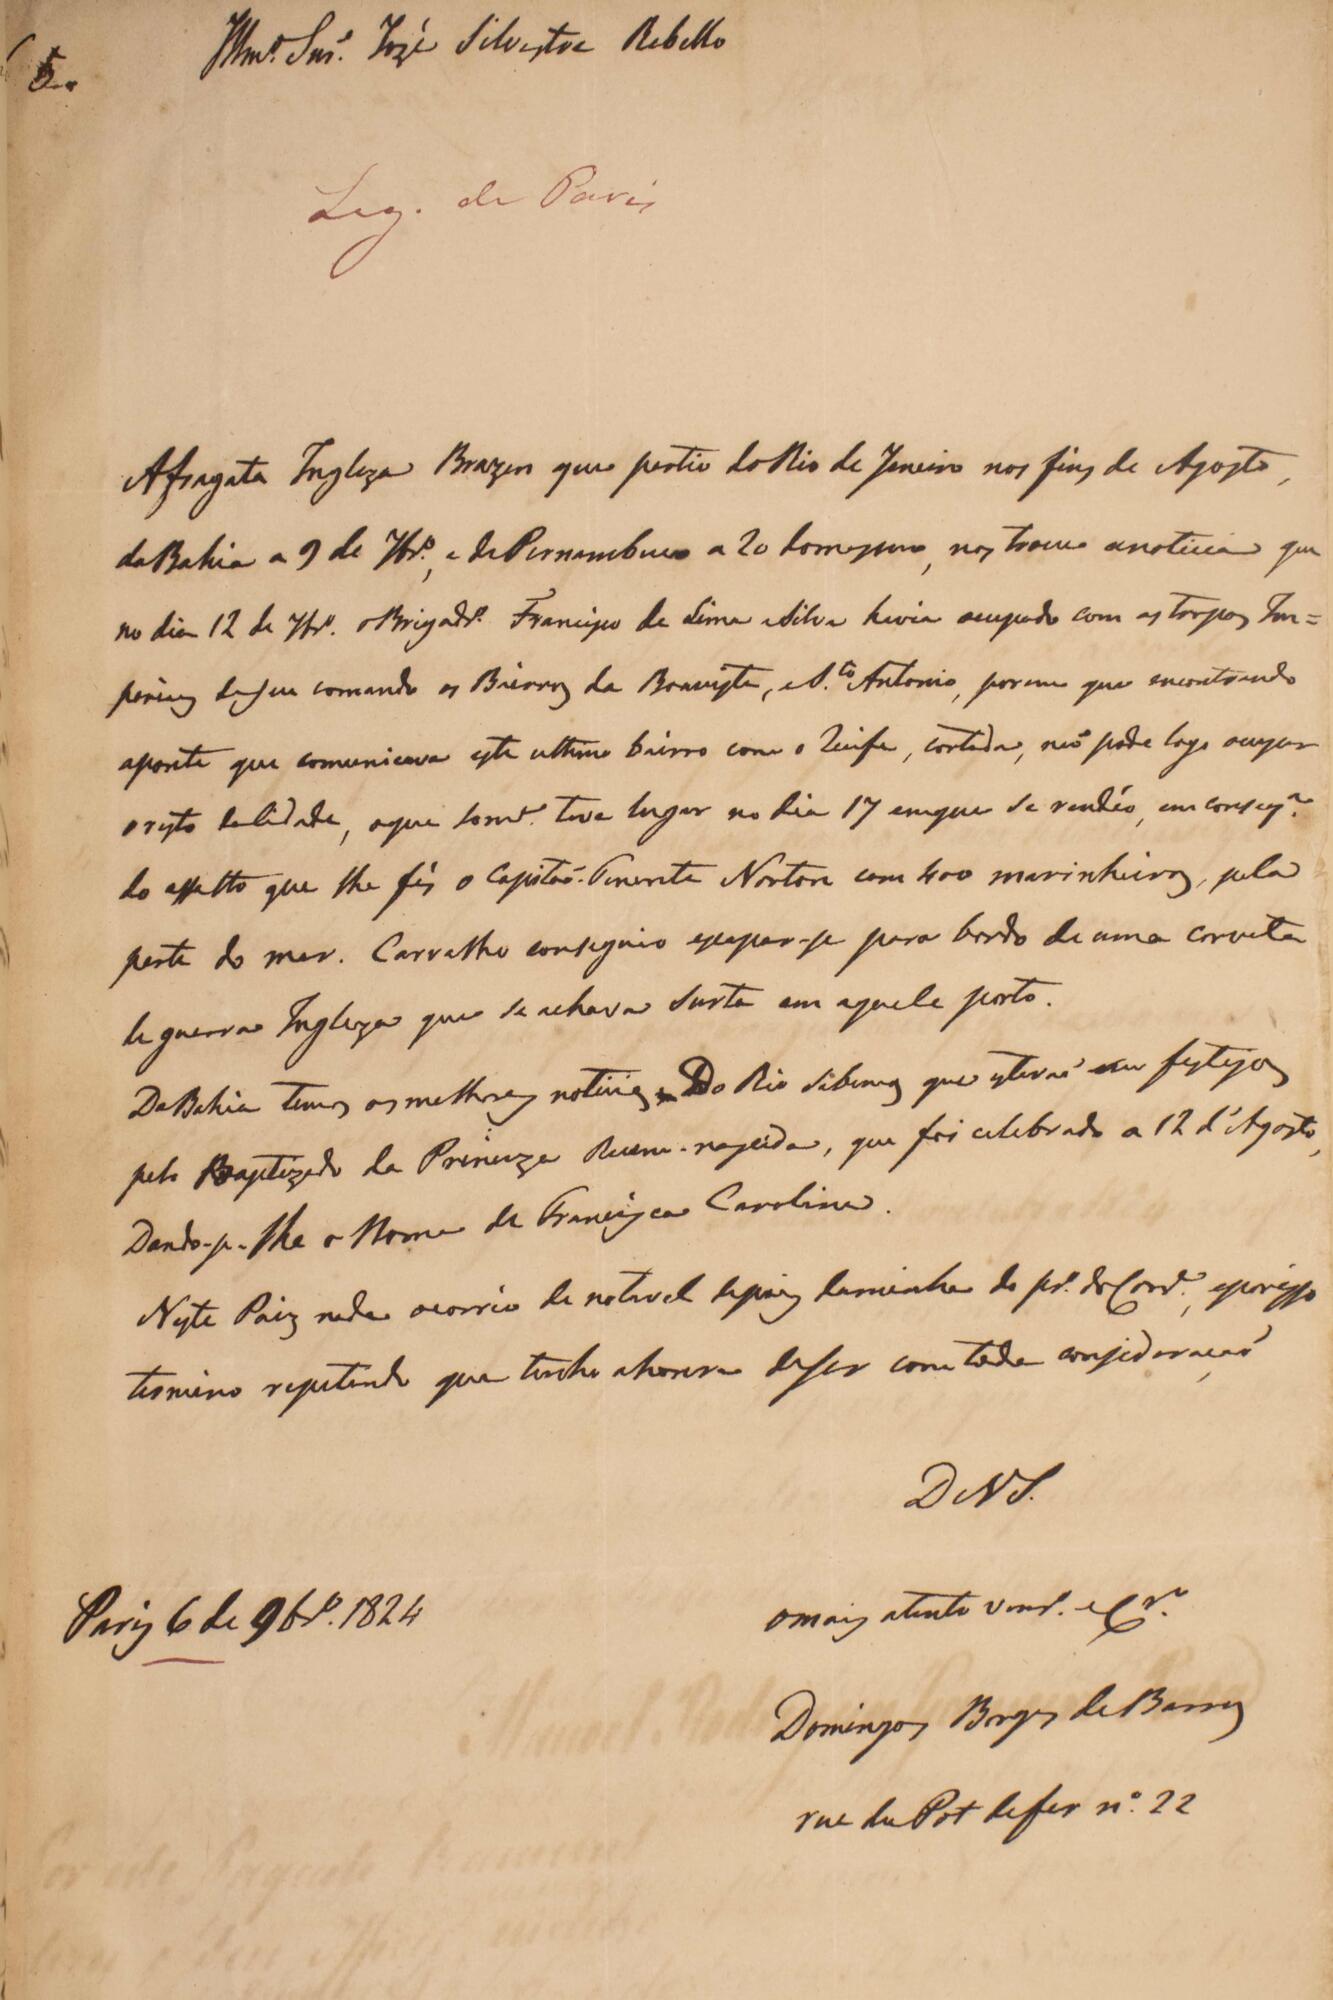 5..
Illmo. Snr. Jozé Silvestre Rebello
Leg. de Paris
A fragata Ingleza Brazen que partio do Rio de Janeiro nos fins de Agosto,
da Bahia a 9 de 7bro., e de Pernambuco a 20 do mesmo, nos trouce a noticia que
no dia 12 de 7bro. o Brigadro. Francisco de Lima e Silva havia ocupado com as tropas Im=
periaes de seu comando os Bairros da Boavista, e S.to Antonio, porem que encontrando
a ponte que comunicava este ultimo bairro com o Recife, cortada, não pode logo ocupar
o resto da Cidade, o que somte. teve lugar no dia 17 em que se rendêo, em conseqa.
do assalto que lhe fes o Capitão-Tenente Norton com 400 marinheiros, pela
parte do mar. Carvalho conseguio escapar-se para bordo de uma corveta
de guerra Ingleza que se achava surta em aquele porto.
Da Bahia temos as melhores noticias. Do Rio sabemos que estavão em festejos
pelo Baptizado da Princeza Recem-nascida, que foi celebrado a 12 d'Agosto,
Dando-se-lhe o Nome de Francisca Carolina.
Neste Paiz nada ocorrio de notavel depois da minha do pro. do Corre., e por isso
termino repetindo que tenho a honra de ser com toda consideração
De V S.
Paris 6 de 9bro. 1824
o mais atento venr. e Cro.
Domingos Borges de Barros
rue du Pot de fer no. 22